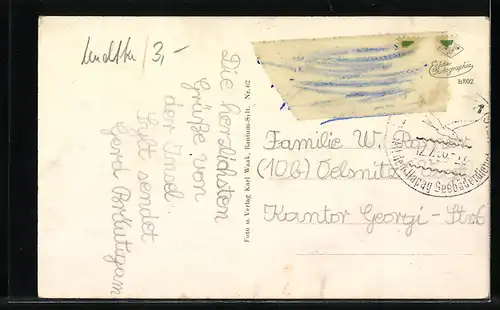 /3,-
Die herzlichsten
Grüße von
der Insel
Sylt sendet
Gerd Bräutigam
Foto u. Verlag Karl Waak, Rantum-Sylt. Nr. 62
Echte
Photographie
h802
Familie W.
(10b) Oelsnitz
Kantor Georgi-Str 6
Seebäderdienst